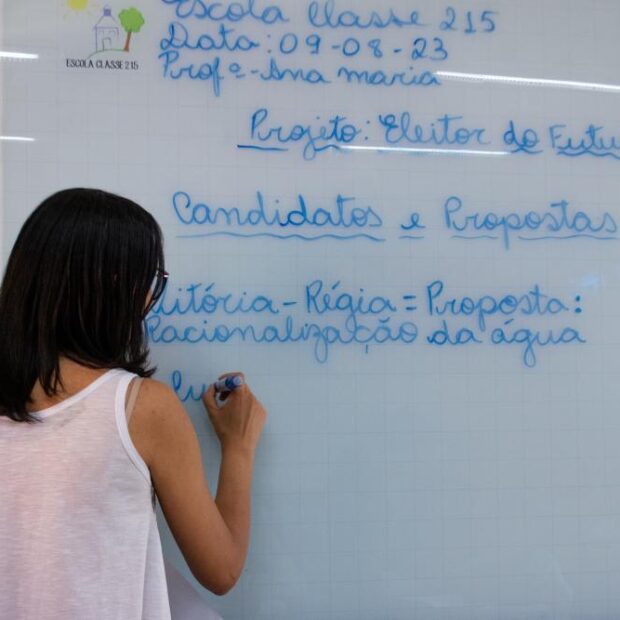 Escola Classe 215
ESCOLA CLASSE 215
Data: 09-08-23
Profª - Ana maria
Projeto: Eleitor do Futu
Candidatos e Propostas
itória-Régia = Proposta:
Racionalização da água